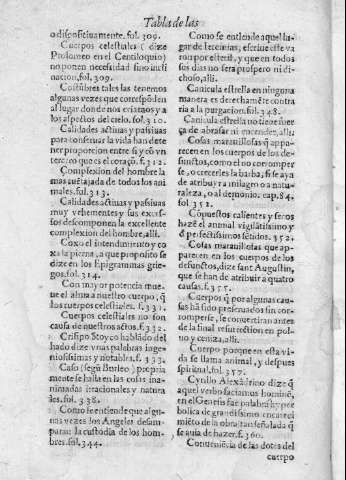 Tabla de las
o dispositiuamente. fol. 309.
Cuerpos celestiales (dize
Ptolomeo en el Centiloquio)
no ponen necessidad sino incli
nacion, fol. 309.
Costũbres tales las tenemos
algunas vezes que correspõden
al lugar donde nos criamos y a
los aspectos del cielo. fol. 310.
Calidades actiuas y passiuas
para conseruar la vida han de te
ner proporcion entre si y cõ vn
tercero que es el coraçõ. f. 312.
Complexion del hombre la
mas auẽtajada de todos los ani
males. ful. 313.
Calidades actiuas y passiuas
muy vehementes y sus
descomponen la excellente
complexion del hombre, alli.
Coxo el intendimiento y co
xa la pierna, a que proposito se
dize en los Epigrammas grie-
gos. fol. 314.
Con mayor potencia mue-
ue el alma a nuestro cuerpo, q̃
los cuerpos celestiales. f. 331.
Cuerpos celestiales no son
causa de nuestros actos. f. 332.
Crisipo Stoyco hablado del
hado dize vnas palabras inge-
niosissimas y notables. f. 333.
Caso (segũ Burleo) propria
mente se halla en las cosas ina-
nimadas irracionales y natura
les. fol. 338.
Como se entiende que algu-
nas vezes los Angeles desam-
paran la custodia de los hom-
bres. fol. 344.
Como se entiende aquel lu-
gar de Ieremias, escriue este va
ron por esteril, y que en todos
sus dias no sera prospero ni di-
choso, alli.
Canicula estrella en ninguna
manera es derechamẽte contra
ria a la purgacion. ful. 348.
Canicula estrella no tiene fuer
ça de abrasar ni encender, alli.
Cosas marauillosas q̃ appa-
recen en los cuerpos de los de-
functos, como el no corromper
se, o crecerles la barba, si se aya
de atribuyr a milagro o a natu-
raleza, o al demonio. cap. 84.
fol 352.
Cõpuestos calientes y secos
hazẽ el animal vigilãtissimo y
d̃ perfectissimos sẽtidos. 352.
Cosas marauillosas que ap-
parecen en los cuerpos de los
defunctos, dize sant Augustin,
que se han de atribuir a quatro
causas. f. 355.
Cuerpos q̃ por algunas cau-
sas hã sido preseruados sin cor-
romperse, se conuertiran antes
de la final resurrection en pol-
uo y ceniza, alli.
Cuerpo porque en esta vi-
da se llama animal, y despues
spiritual, fol. 357.
Cyrillo Alexãdrino dize q̃
aquel verbo faciamus hominẽ,
en el Genesis fue palabra hyper
bolica de grandissimo encareci
miẽto de la obra tan señalada q̃
se auia de hazer. f. 360.
de las dotes del
cuerpo